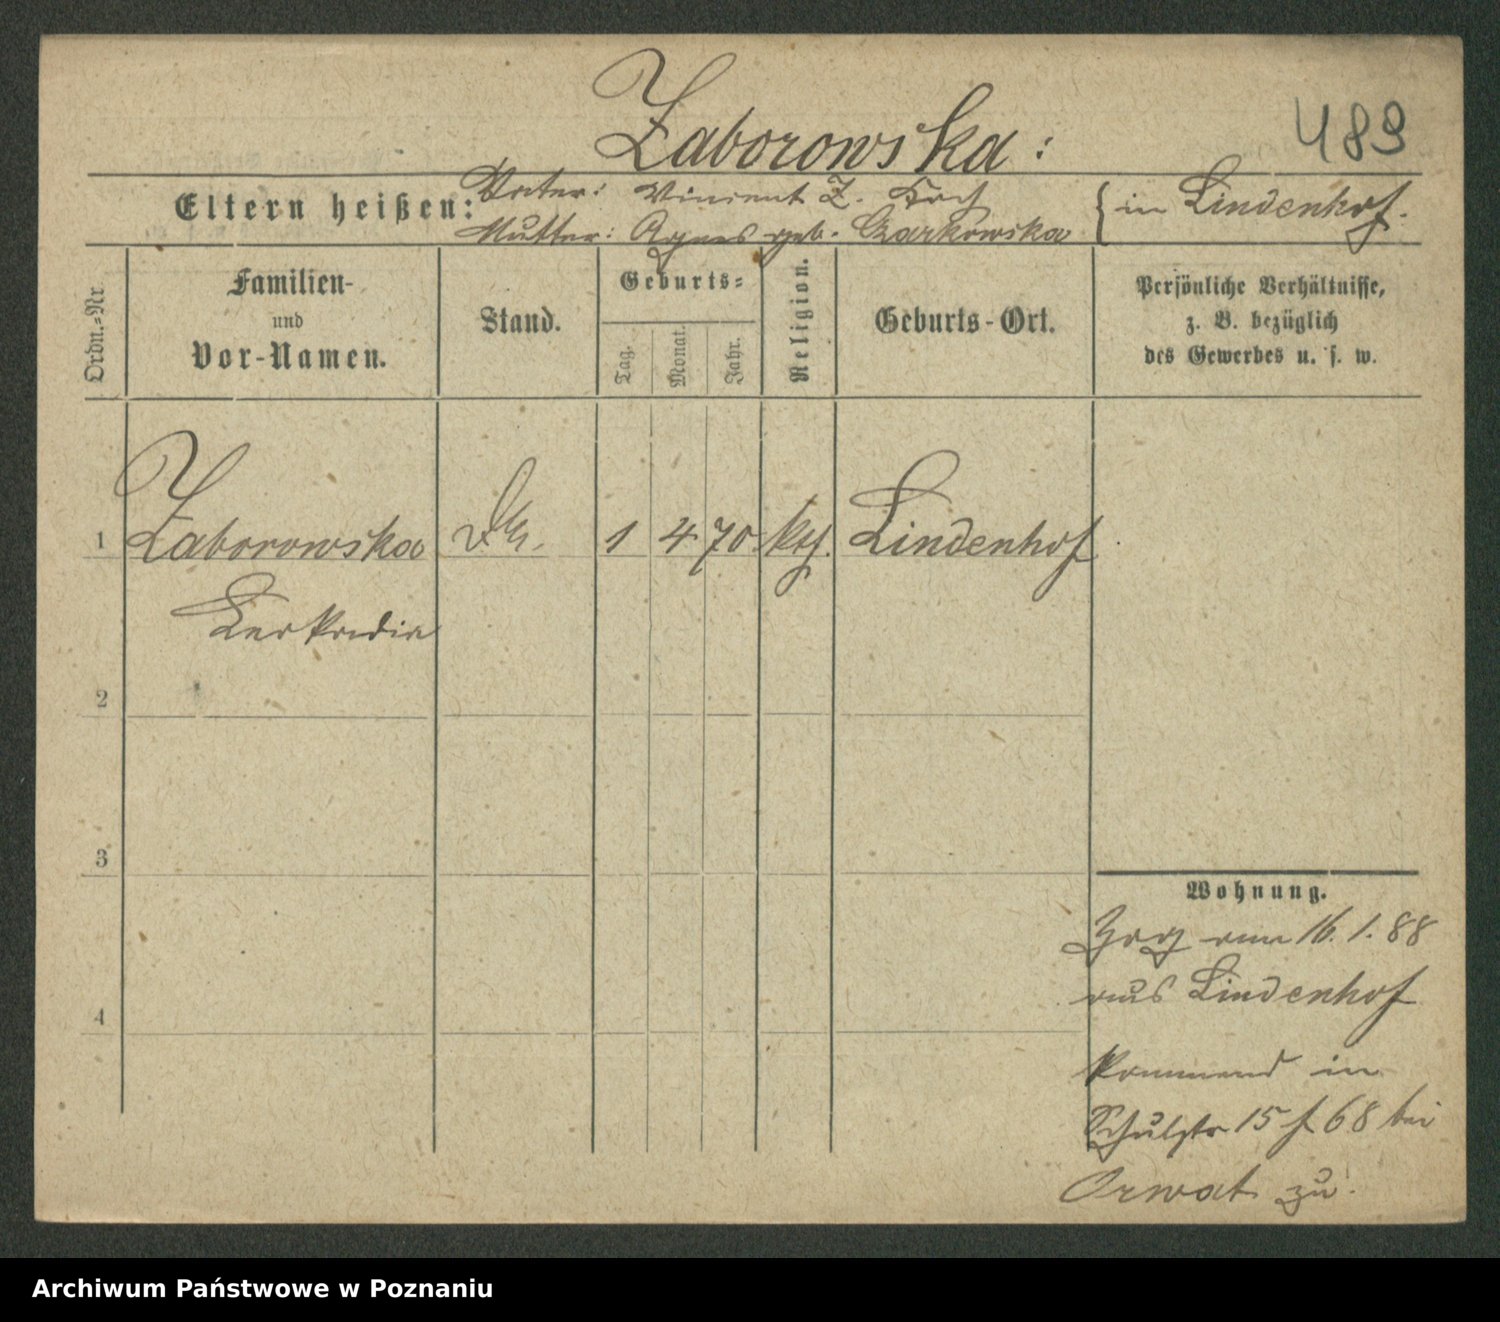 Zaborowska:
489
Eltern heißen:
Vater: Vincent Z.
Mutter: Agnes geb. Czarkowska
in Lindenhof.
Ordn.-Nr.
Familien-
und
Vor-Namen.
Stand.
Geburts-
Tag.
Monat.
Jahr.
Religion.
Geburts-Ort.
Persönliche Verhältnisse,
z. B. bezüglich
des Gewerbes u. s. w.
1 Zaborowska 1 4 70 kth. Lindenhof
Leokadia
2
3
4
Wohnung.
Zog am 16. 1. 88
aus Lindenhof
kommend in
Schulstr 15 f 68 bei
Orwat zu.
Archiwum Państwowe w Poznaniu